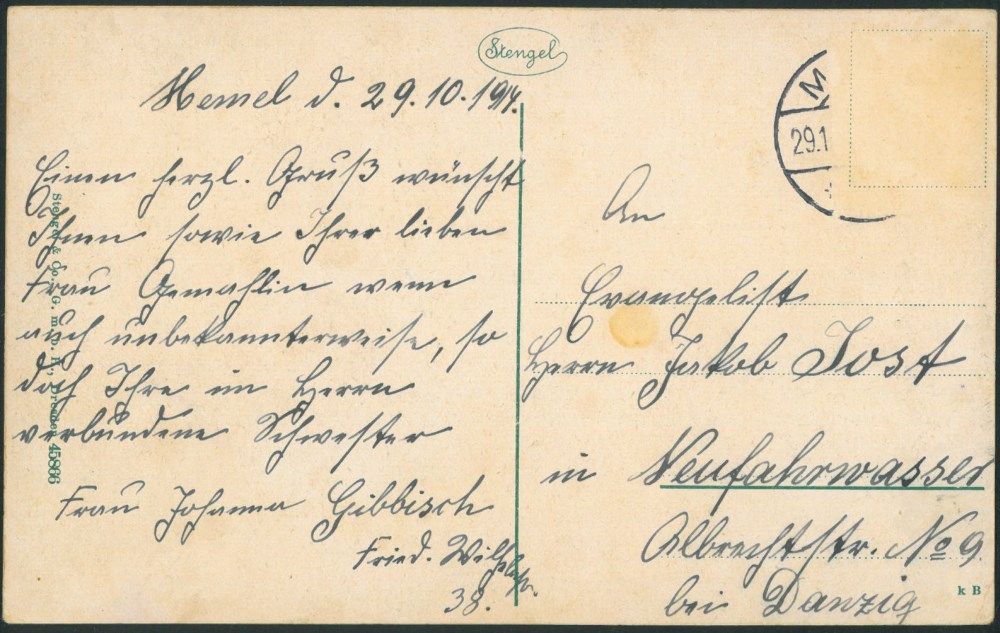 Stengel
Memel d. 29.10.1914.
Einen herzl. Gruß wünscht
Ihnen sowie Ihrer lieben
Frau Gemahlin wenn
auch unbekannterweise, so
doch Ihre im Herrn
verbundene Schwester
Frau Johanna Gibbisch
Fried. Wilh.
38.
Stengel & Co., G. m. b. H., Dresden 45866
M
29.1
An
Evangelist
Herrn Jakob Jost
in Neufahrwasser
Albrechtstr. No 9
bei Danzig
k B